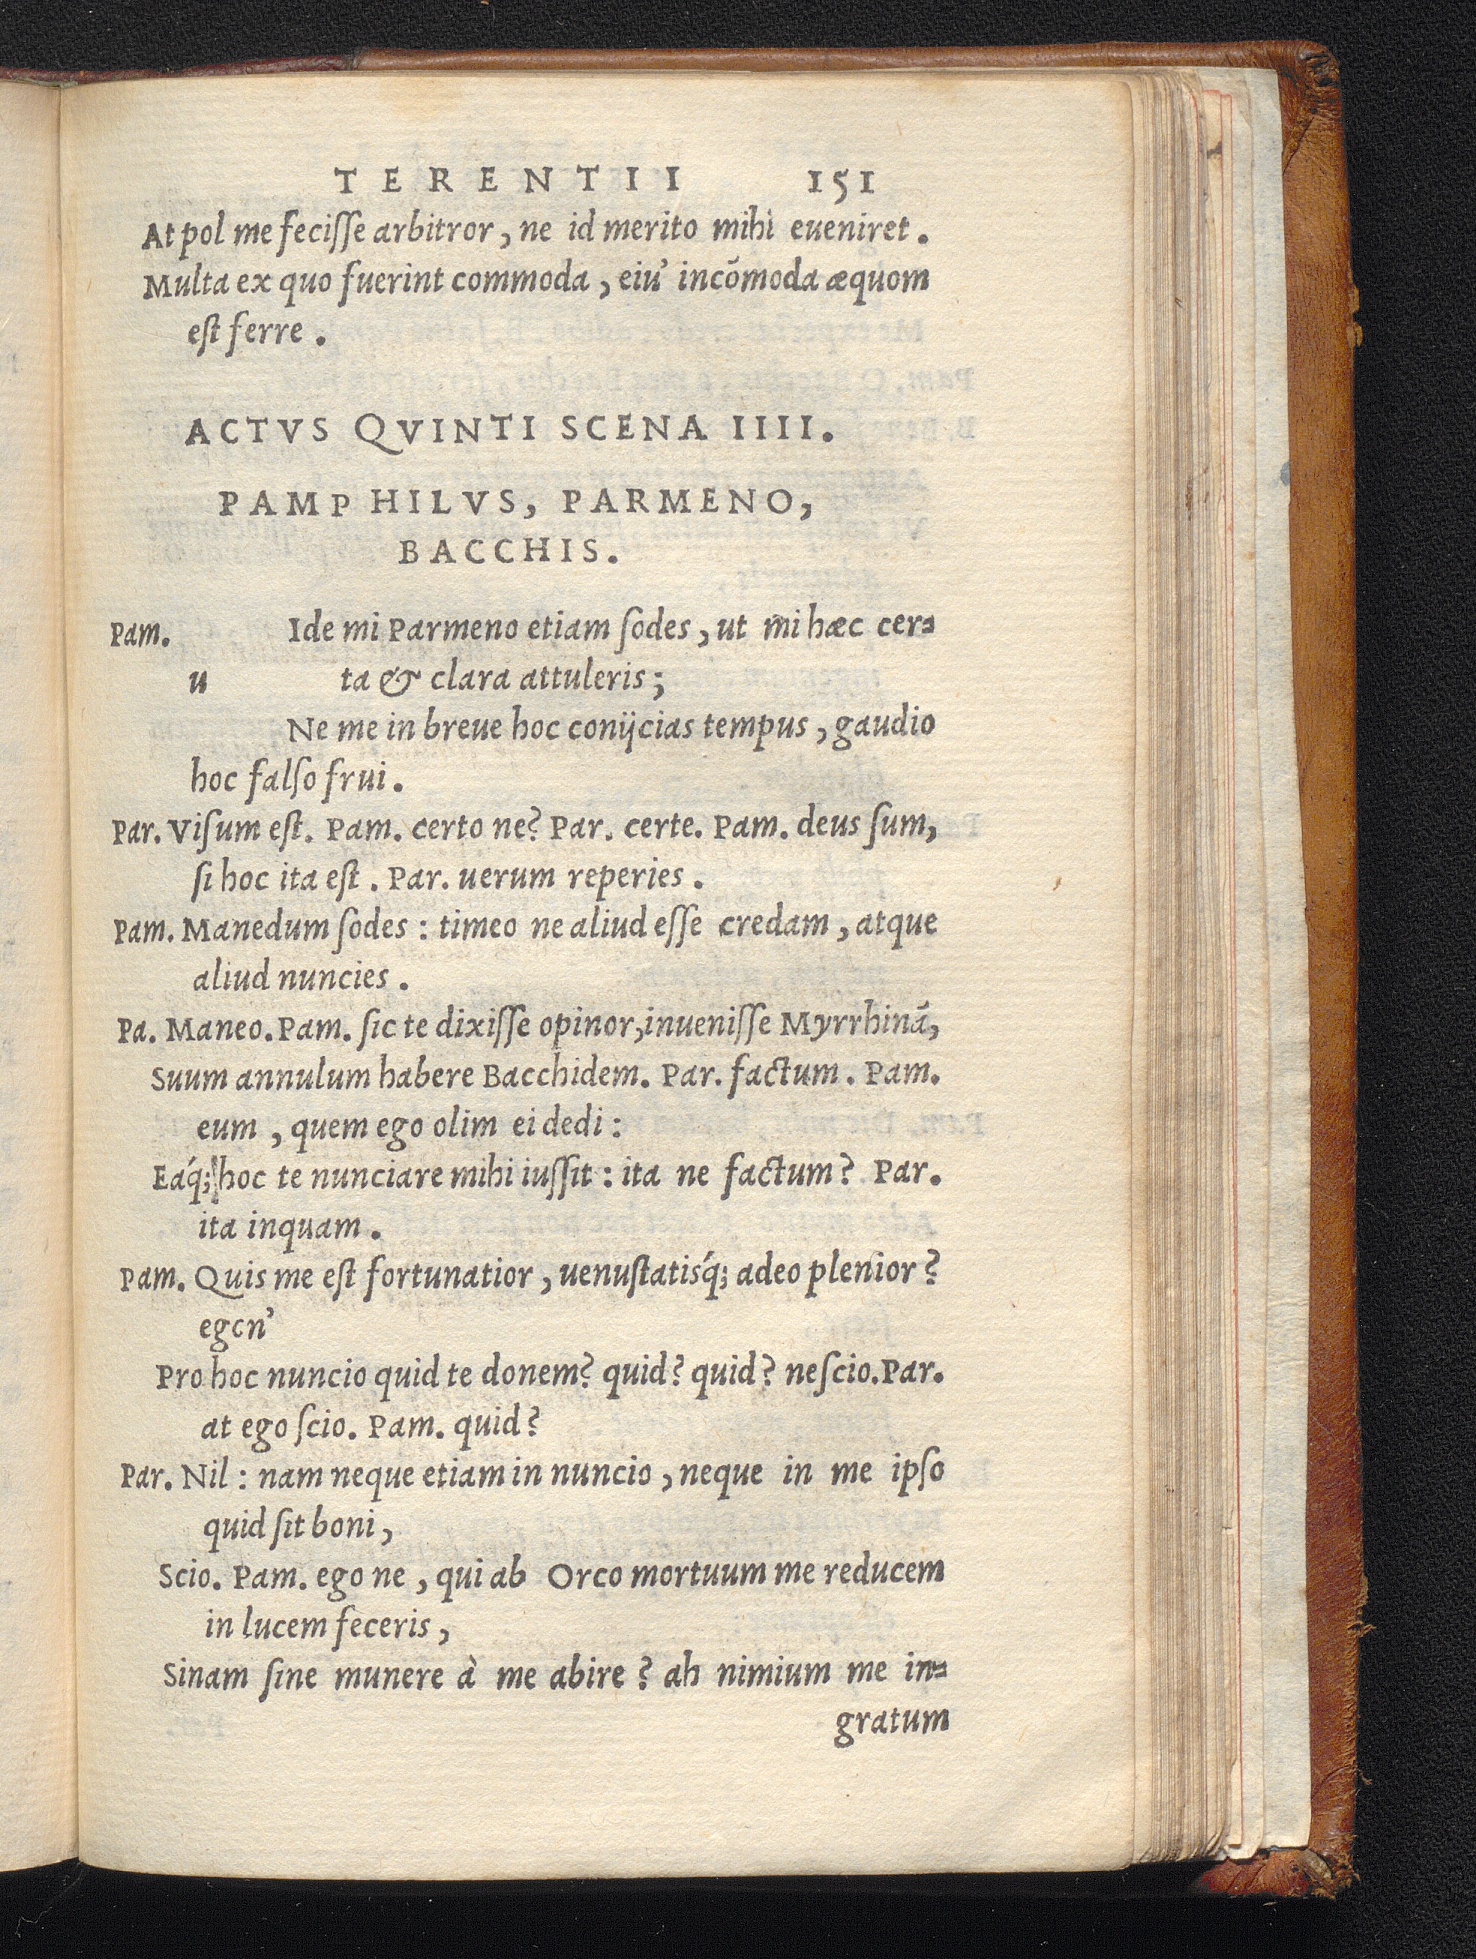 TERENTII 151
At pol me feciſſe arbitror, ne id merito mihi eueniret.
Multa ex quo fuerint commoda, eiu' incõmoda æquom
eſt ferre.
ACTVS QVINTI SCENA IIII.
PAMPHILVS, PARMENO,
BACCHIS.
Pam. Ide mi Parmeno etiam ſodes, ut mi hæc cer-
u ta & clara attuleris;
Ne me in breue hoc conijcias tempus, gaudio
hoc falſo frui.
Par. Viſum eſt. Pam. certo ne? Par. certe. Pam. deus ſum,
ſi hoc ita eſt. Par. uerum reperies.
Pam. Manedum ſodes: timeo ne aliud eſſe credam, atque
aliud nuncies.
Pa. Maneo. Pam. ſic te dixiſſe opinor, inueniſſe Myrrhinã,
Suum annulum habere Bacchidem. Par. factum. Pam.
eum, quem ego olim ei dedi:
Eáq; hoc te nunciare mihi iuſſit: ita ne factum? Par.
ita inquam.
Pam. Quis me eſt fortunatior, uenuſtatisq́; adeo plenior?
egon'
Pro hoc nuncio quid te donem? quid? quid? neſcio. Par.
at ego ſcio. Pam. quid?
Par. Nil: nam neque etiam in nuncio, neque in me ipſo
quid ſit boni,
Scio. Pam. ego ne, qui ab Orco mortuum me reducem
in lucem feceris,
Sinam ſine munere à me abire? ah nimium me in-
gratum